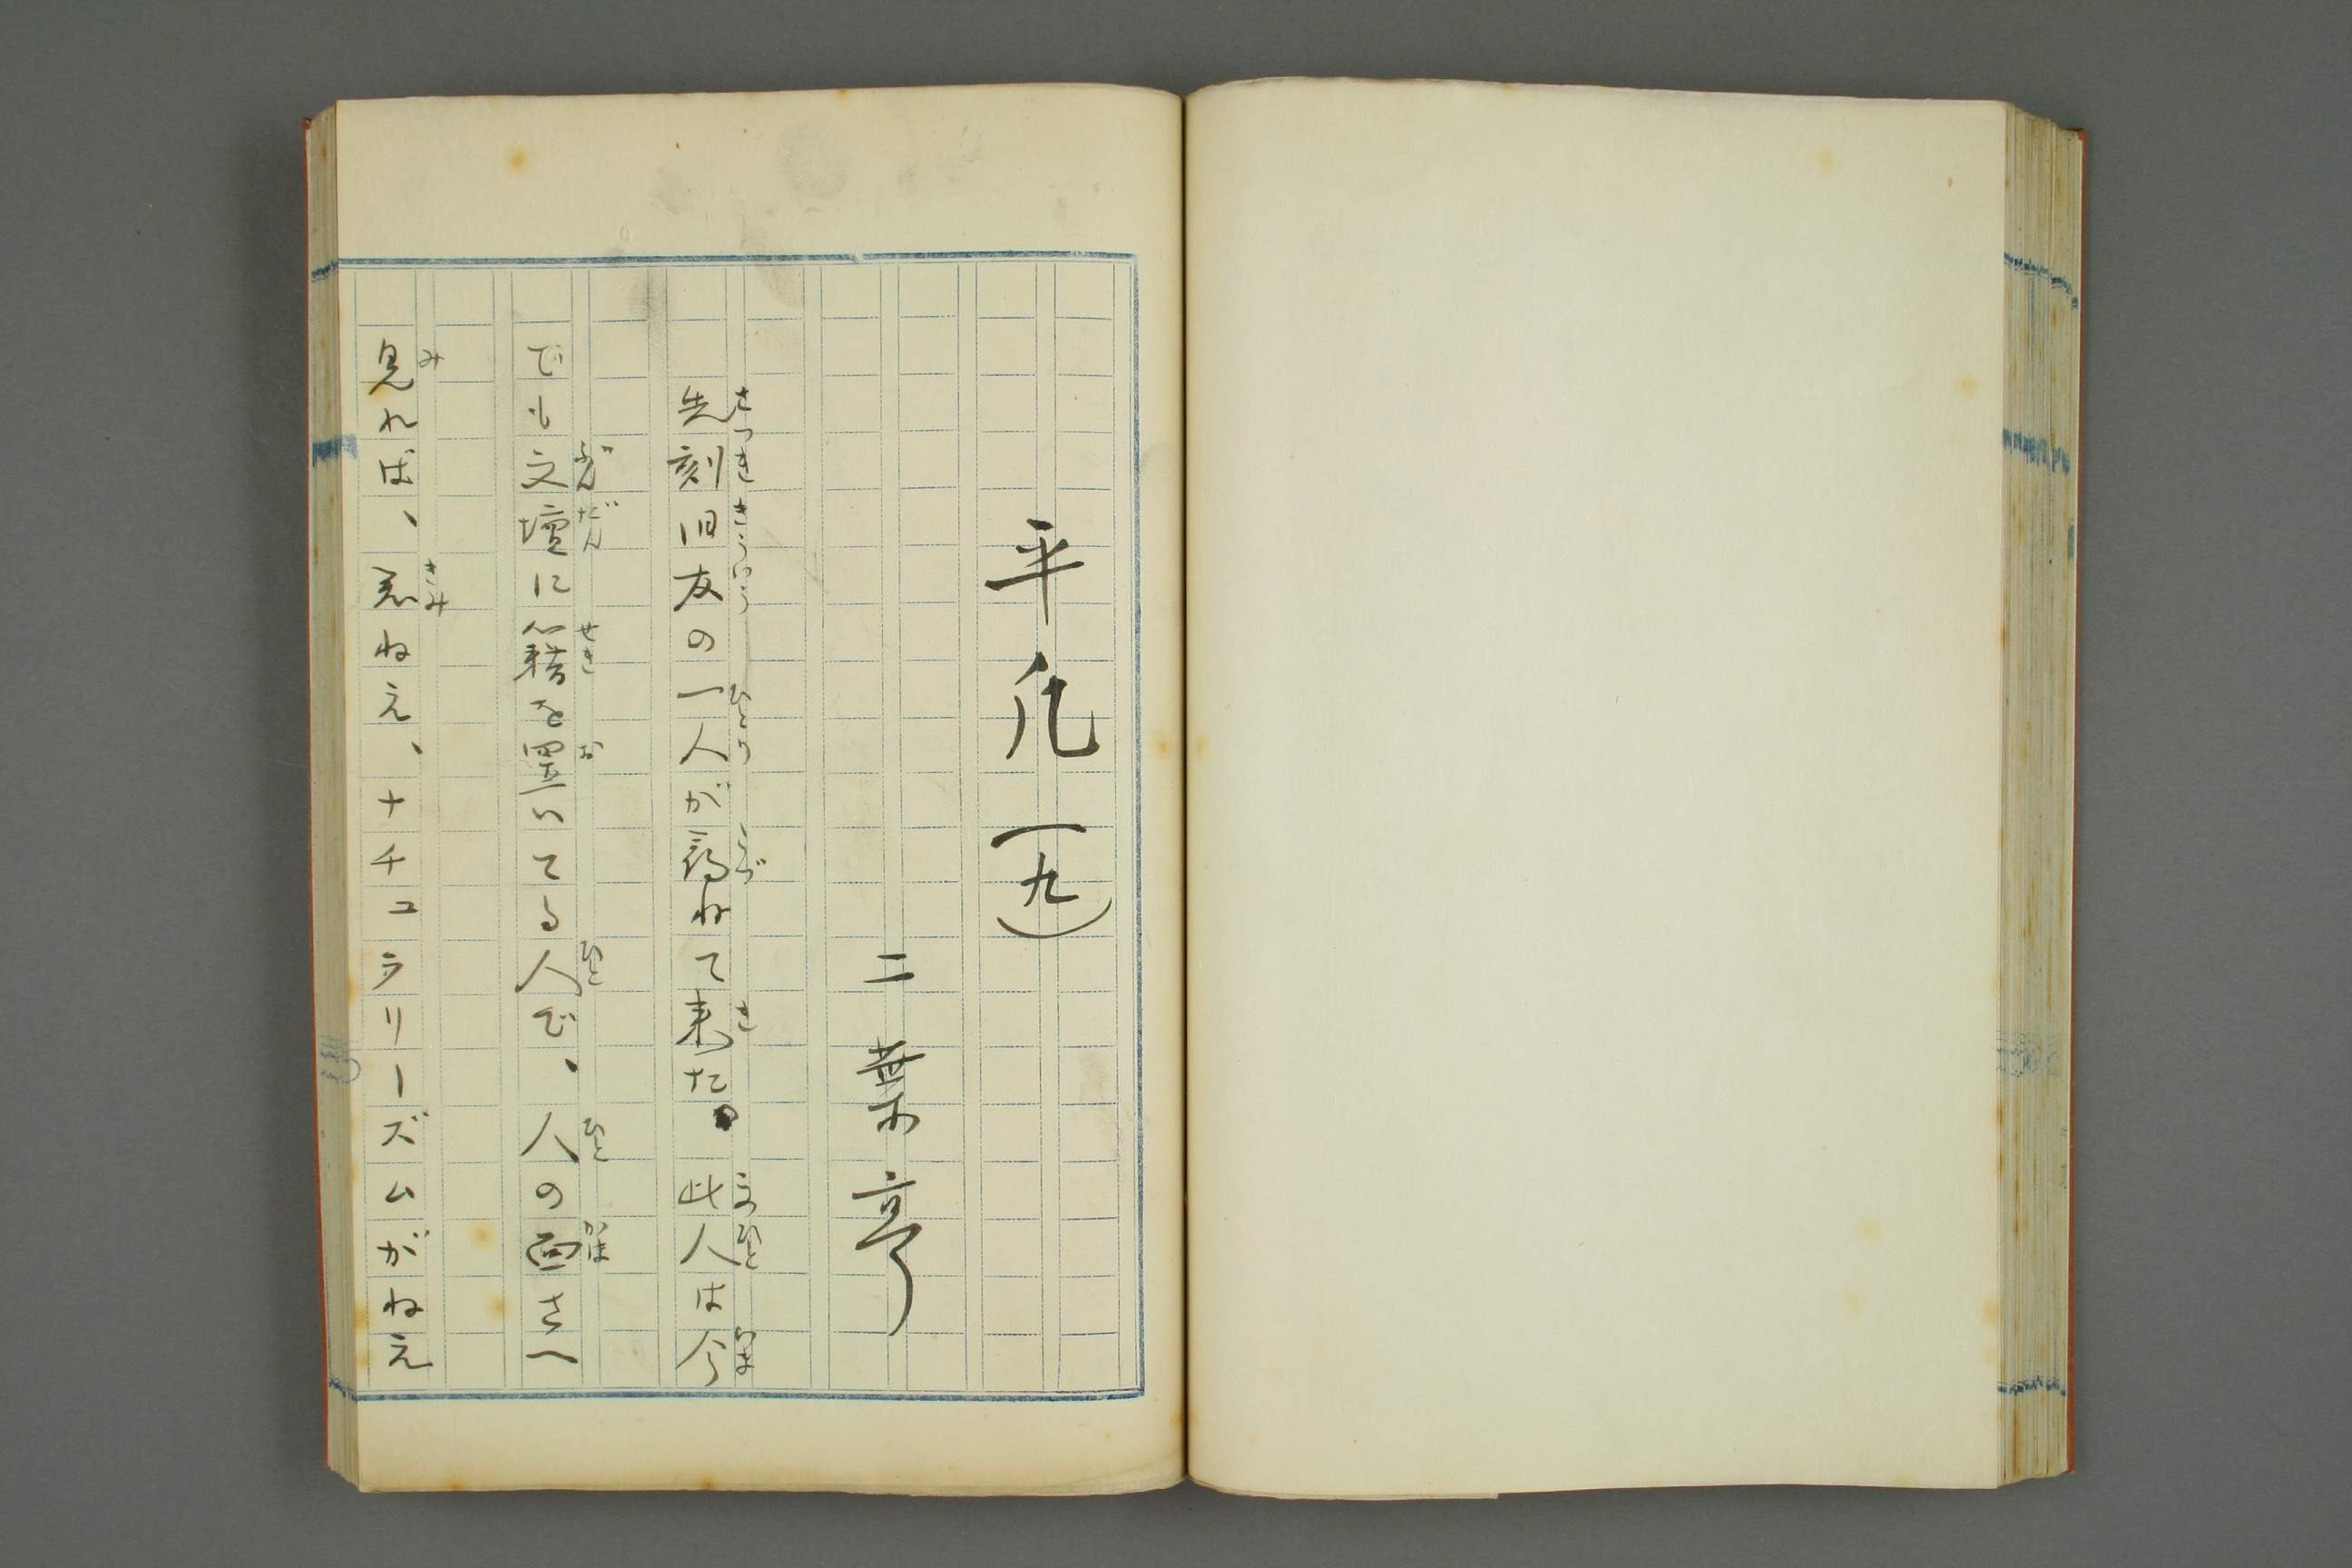 平凡(九)
二葉亭
先刻旧友の一人が尋ねて来た。此人は今
でも文壇に籍を置いてる人で、人の面さへ
見れば、君ねえ、ナチュラリーズムがねえ